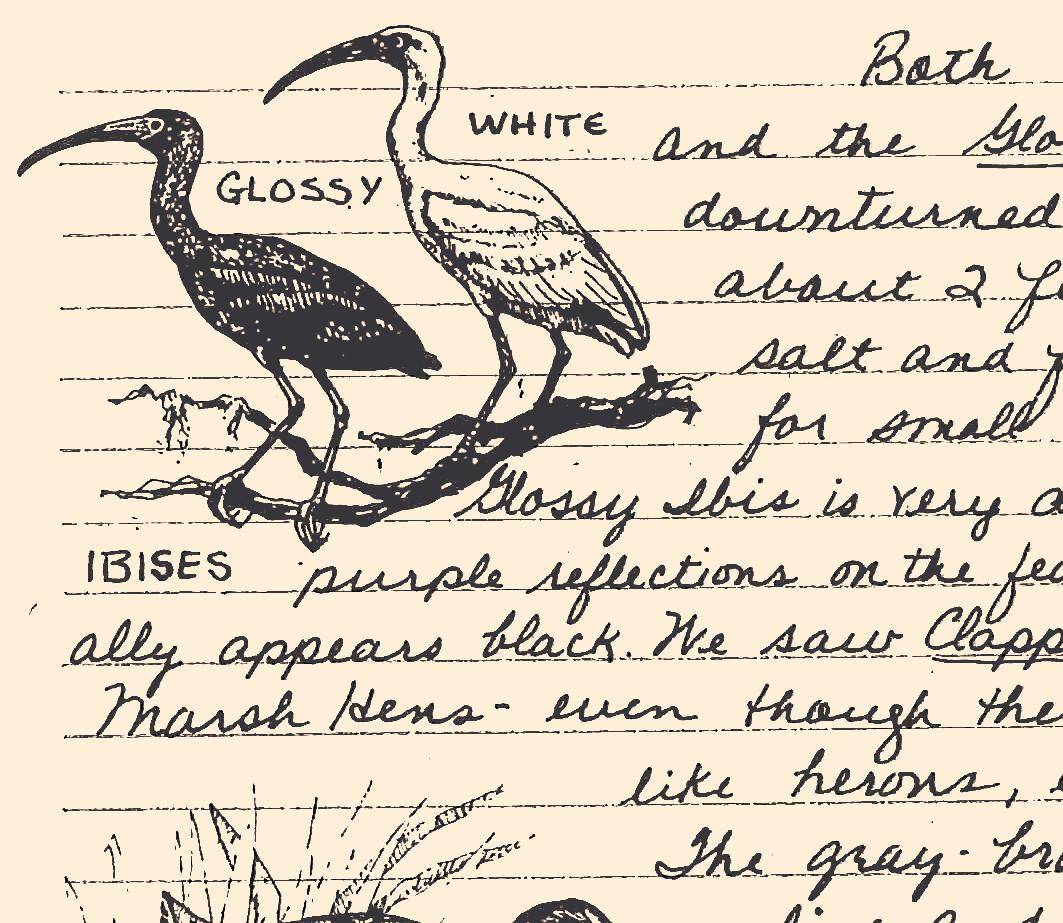 Both
WHITE
and the Glo
GLOSSY
downturned
about 2 fe
salt and f
for small
Glossy Ibis is very d
IBISES
purple reflections on the fea
ally appears black. We saw Clapp
Marsh Hens- even though the
like herons,
The gray-bro